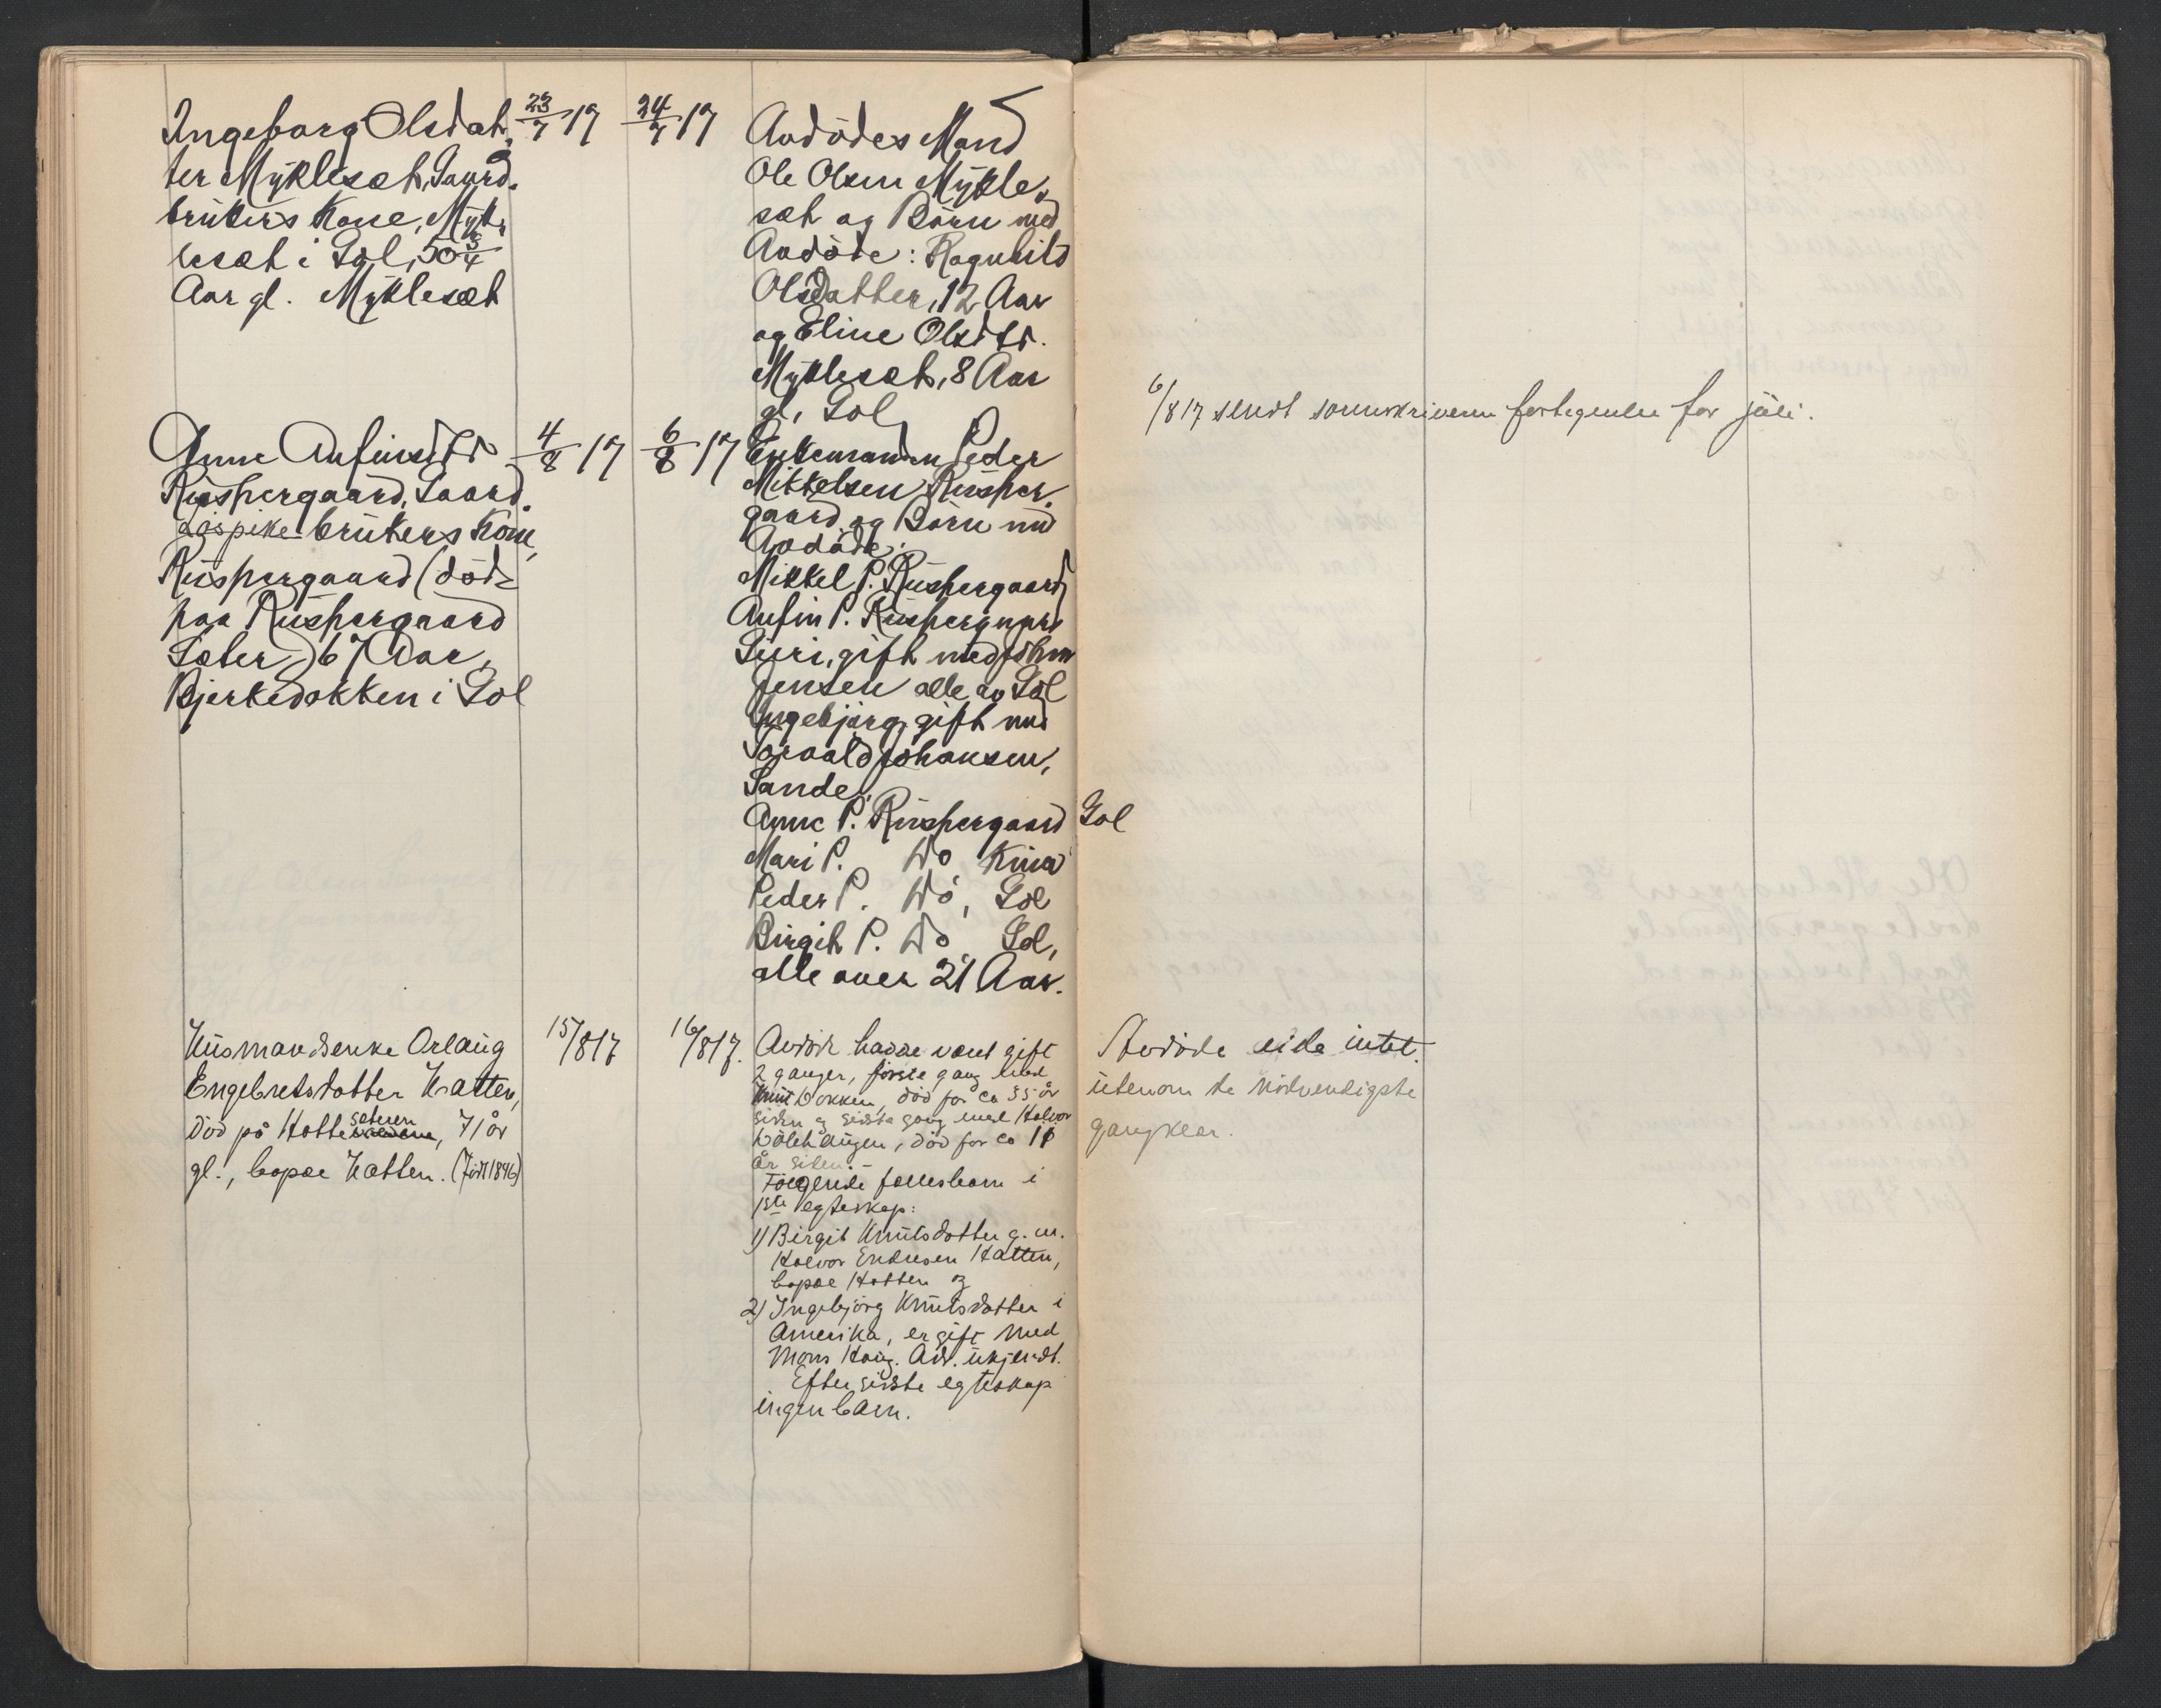 Ingeborg Olsdat-
ter Myklesæt, Gaard-
brukers Kone, Myk-
lesæt i Gol, 50 3/4
Aar gl. Myklesæt
23/7 17
24/7 17
Avdödes Mand
Ole Olsen Mykle-
sæt og Börn med
Avdöde: Ragnhild
Olsdatter, 12 Aar
og Eline Olsdtr.
Myklesæt, 8 Aar
gl, Gol
6/8 17 sendt sorenskriveren fortegnelse for juli.
Anne Anfinsdtr
Ruspergaard, Gaard-
brukers Kone,
Ruspergaard (död
paa Ruspergaard
Sæter) 67 Aar,
Bjerkedokken i Gol
4/8 17
6/8 17
Enkemanden Peder
Mikkelsen Rusper-
gaard og Börn med
Avdöde:
Mikkel P. Ruspergaard
Anfin P. Ruspergaard
Guri, gift med John
Jensen alle av Gol
Ingebjörg, gift med
Torvald Johansen,
Sande,
Anne P. Ruspergaard Gol
Mari P. Do Kina
Peder P. Do, Gol
Birgit P. Do, Gol,
alle over 21 Aar.
Husmandsenke Orlaug
Engebretsdatter Hatten,
död på Hattesæteren, 71 år
gl., bopæl Hatten. (född 1846)
15/8 17
16/8 17.
Avdöde hadde været gift
2 ganger, förste gang med
Knut Dokken, död for ca 35 år
siden og sidste gang med Halvor
död for ca 11
år siden.-
Fölgende fællesbarn i
1ste egteskap:
1) Birgit Knutsdatter g.m.
Halvor Endresen Hatten,
bopæl Hatten og
2) Ingebjörg Knutsdatter i
Amerika, er gift med
Mons Haug. Adr. ukjendt.
Efter sidste egteskap
ingen barn.
Avdöde eide intet
utenom de nödvendigste
gangklær.